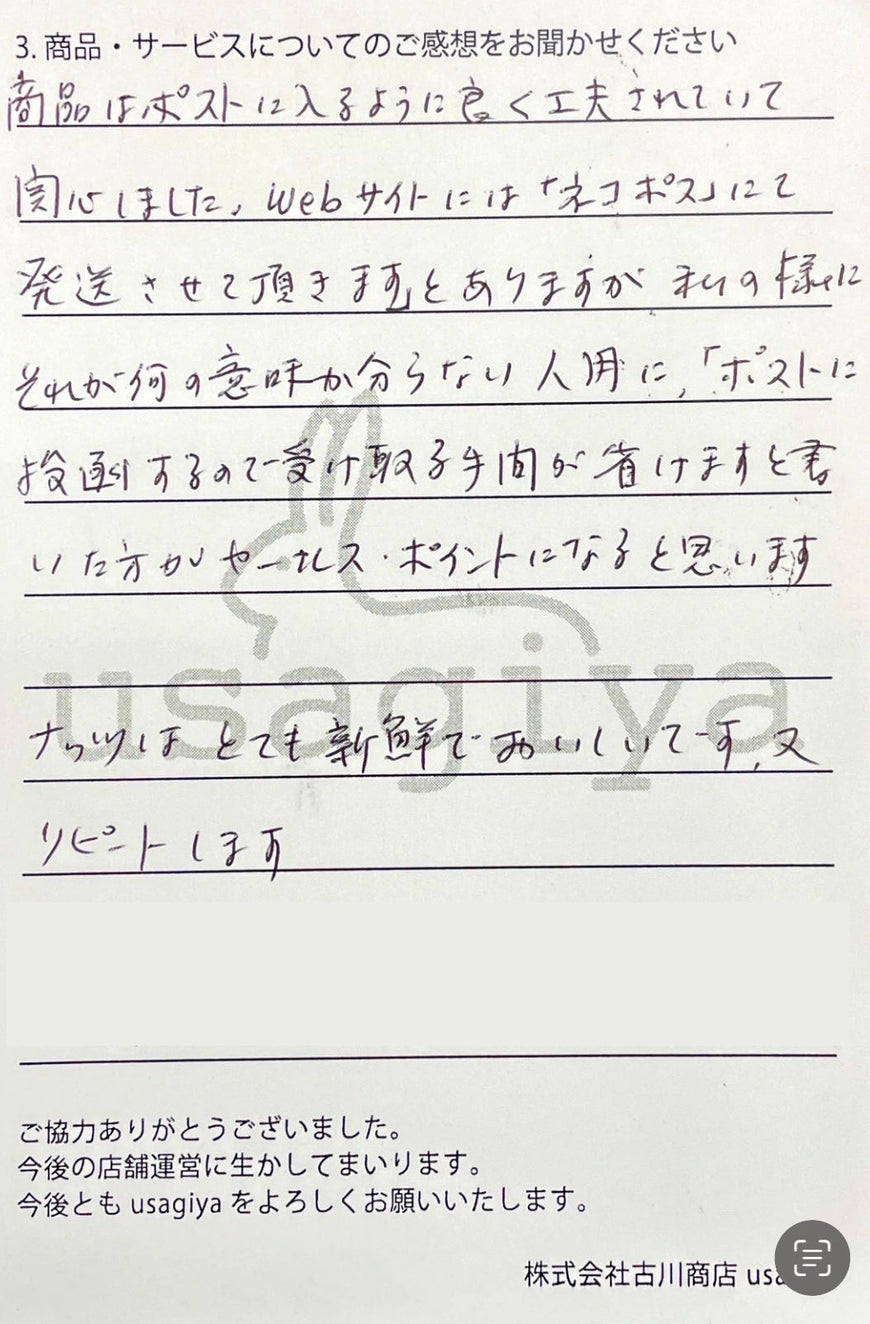 3. 商品・サービスについてのご感想をお聞かせください
商品はポストに入るように良く工夫されていて
関心しました。webサイトには「ネコポス」にて
発送させて頂きます」とありますが 私の様に
それが何の意味か分らない人用に、「ポストに
投函するので受け取る手間が省けますと書
いた方がセールス・ポイントになると思います
usagiya
ナッツは とても新鮮でおいしいです、又
リピートします
ご協力ありがとうございました。
今後の店舗運営に生かしてまいります。
今後とも usagiya をよろしくお願いいたします。
株式会社古川商店 usa